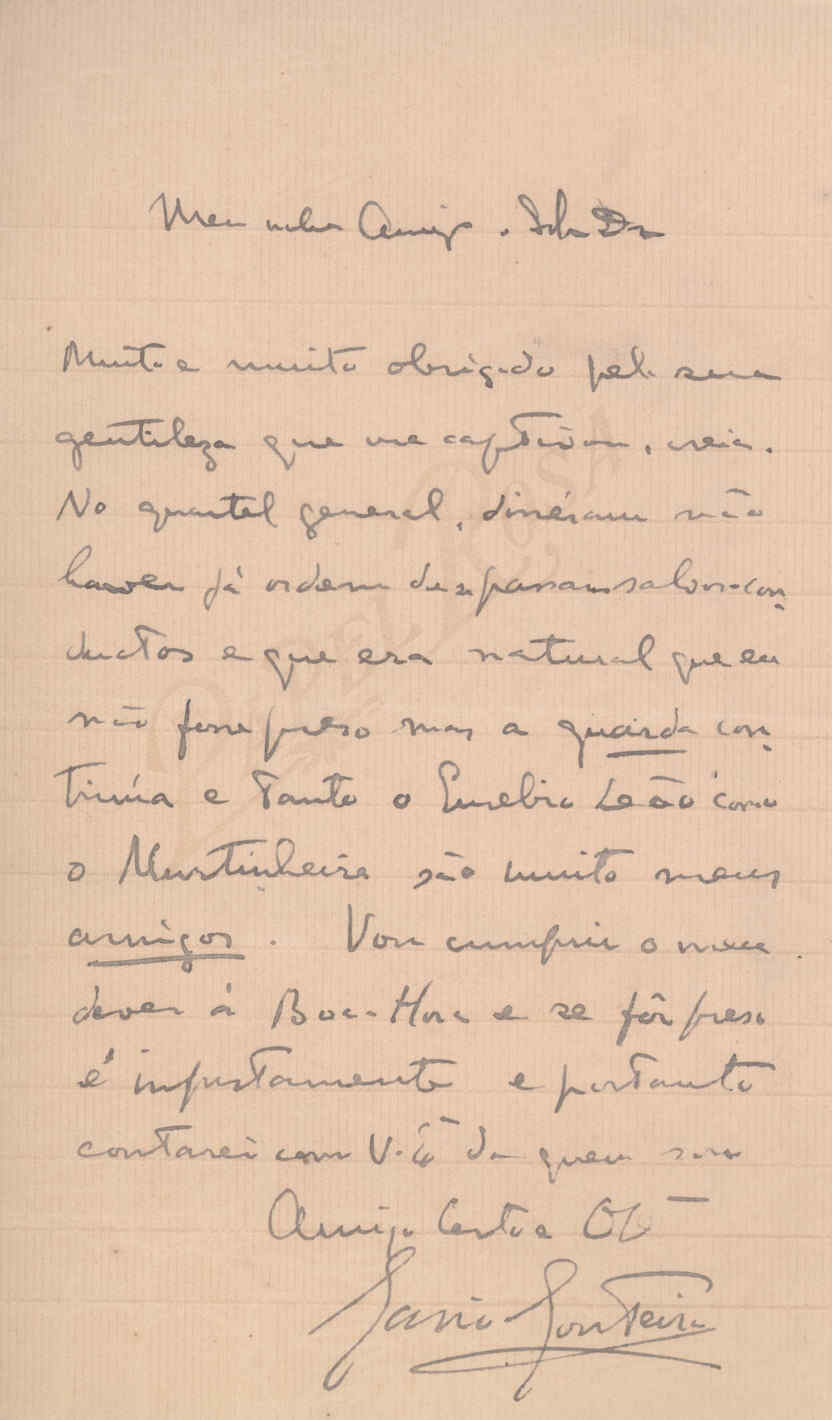 Meu Amigo
Muito e muito obrigado pela sua
gentileza que me captivou, creia.
No quartel general, disséram não
haver já ordem de se passarem salvos-con-
ductos e que era natural que eu
não fosse preso mas a guarda con-
tinúa e tanto o Eusebio Leão como
o Martinheira são muito meus
amigos. Vou cumprir o meu
dever á Boa-Hora e se fôr preso
é injustamente e portanto
contarei com V. Ex.ª de quem sou
Amigo Certo e